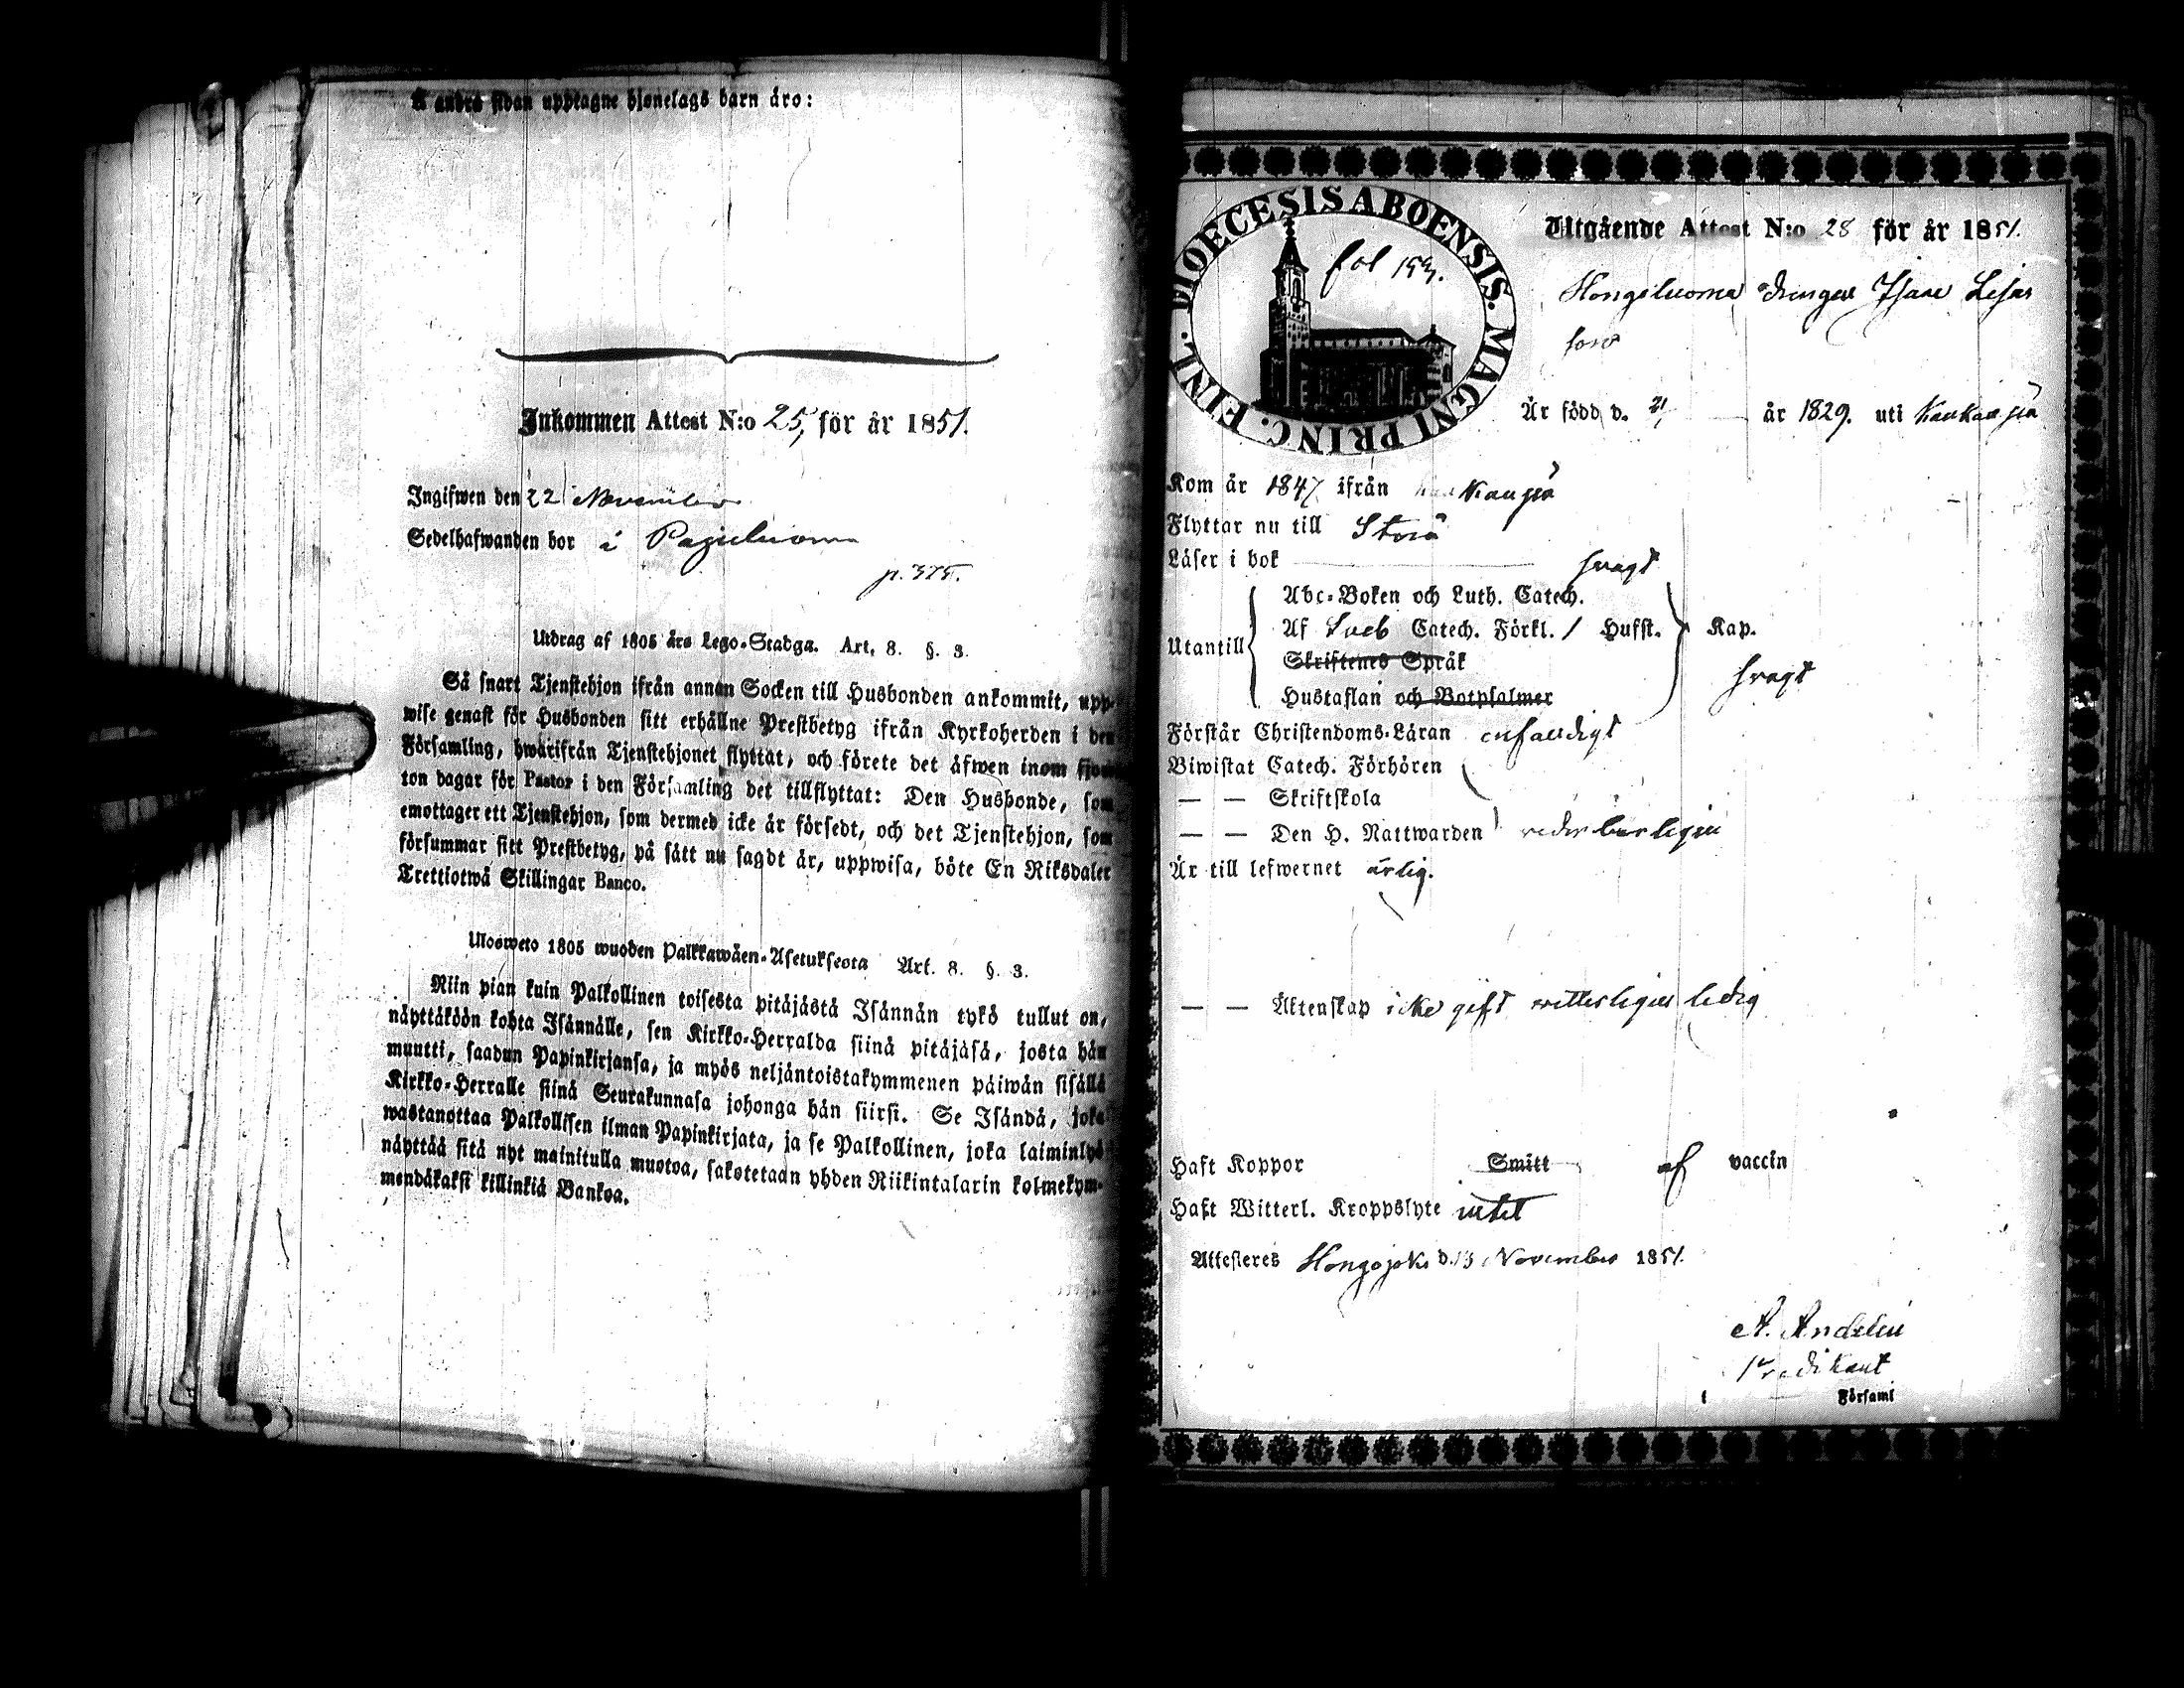 Å andra sidan upptagne hjonelags barn äro:
Inkommen Attest N:o 25, för år 1851.
Ingifwen den 22 November
Sedelhafwanden bor i
p. 375.
Utdrag af 1805 års Lego-Stadga. Art. 8. §. 3.
Så snart Tjenstehjon ifrån annan Socken till Husbonden ankommit, upp-
wise genast för Husbonden sitt erhållne Prestbetyg ifrån Kyrkoherden i den
Församling, hwarifrån Tjenstehjonet flyttat, och förete det äfwen inom fjor-
ton dagar för Pastor i den Församling det tillflyttat: Den Husbonde, som
emottager ett Tjenstehjon, som dermed icke är försedt, och det Tjenstehjon, som
försummar sitt Prestbetyg, på sätt nu sagdt är, uppwisa, böte En Riksdaler
Trettiotwå Skillingar Banco.
Ulosweto 1805 wuoden Palkkawäen-Asetuksesta Art. 8. §. 3.
Niin pian kuin Palkollinen toisesta pitäjästä Isännän tykö tullut on,
näyttäköön kohta Isännälle, sen Kirkko-Herralda siinä pitäjäsä, josta hän
muutti, saadun Papinkirjansa, ja myös neljäntoistakymmenen päiwän sisällä
Kirkko-Herralle siinä Seurakunnasa johonga hän siirsi. Se Isändä, joka
wastanottaa Palkollisen ilman Papinkirjata, ja se Palkollinen, joka laiminlyö
näyttää sitä nyt mainitulla muotoa, sakotetaan yhden Riikintalarin kolmekym-
mendäkaksi killinkiä Bankoa.
DIOECESIS ABOENSIS. MAGNI PRINC. FINL.
fol 153.
Utgående Attest N:o 28 för år 1851.
Hongoluoma drengen Isaac Lisas
son
Är född d. 21/ år 1829. uti Kauhajoki
Kom år 1847 ifrån Kauhajoki
Flyttar nu till Storå
Läser i bok swagt
Abc-Boken och Luth. Catech.
Utantill Af Sveb Catech. Förkl. / Hufst. Kap.
Skriftenes Språk
swagt
Hustaflan och Botpsalmer
Förstår Christendoms-Läran enfaldigt
Biwistat Catech. Förhören
— — Skriftskola
— — Den H. Nattwarden wederbörligen
Är till lefwernet ärlig.
— — Äktenskap icke gift witterligen ledig
Haft Koppor Smitt af vaccin
Haft Witterl. Kroppslyte intet
Attesteres Hongojoki d. 13 November 1851.
A. Andelin
Predikant
i Församl